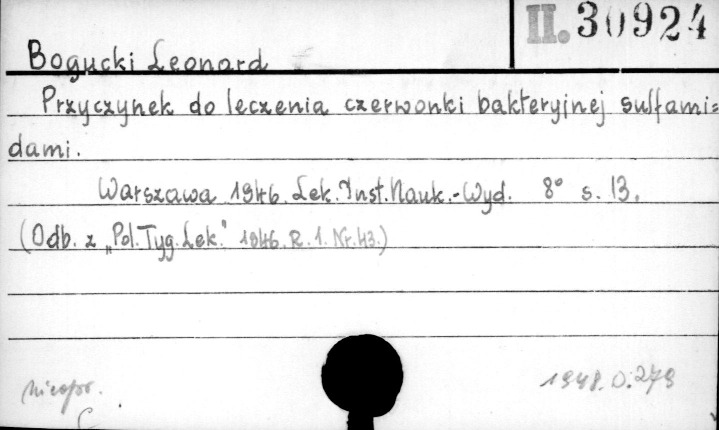 II. 30924
Bogucki Leonard
Przyczynek do leczenia czerwonki bakteryjnej sulfami=
dami.
Warszawa 1946. Lek. Inst. Nauk.-Wyd. 8° s. 13.
(Odb. z „Pol. Tyg. Lek." 1946. R. 1. Nr. 43.)
nieopr.
1948.D.279
C